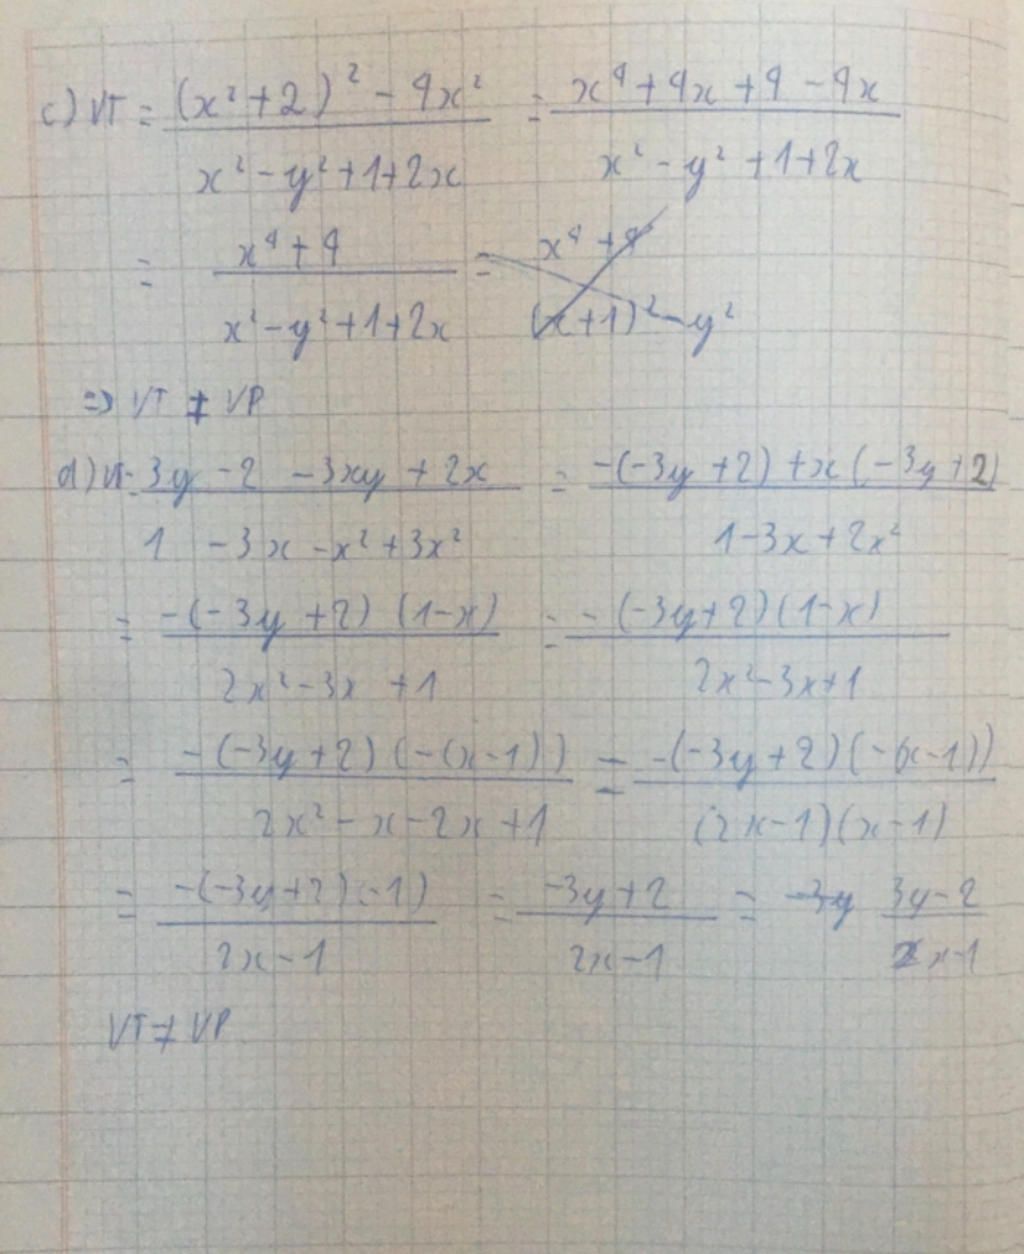 c) VT = ((x² + 2)² - 4x²)/(x² - y² + 1 + 2x) = (x⁴ + 4x + 4 - 4x)/(x² - y² + 1 + 2x)
= (x⁴ + 4)/(x² - y² + 1 + 2x) = (x⁴ + 4)/((x + 1)² - y²)
=> VT ≠ VP
d) VT = (3y - 2 - 3xy + 2x)/(1 - 3x - x² + 3x²) = (-(-3y + 2) + x(-3y + 2))/(1 - 3x + 2x²)
= (-(-3y + 2)(1 - x))/(2x² - 3x + 1) = (-(-3y + 2)(1 - x))/(2x² - 3x + 1)
= (-(-3y + 2)(-(x - 1)))/(2x² - x - 2x + 1) = (-(-3y + 2)(-(x - 1)))/((2x - 1)(x - 1))
= (-(-3y + 2)(-1))/(2x - 1) = (-3y + 2)/(2x - 1) = -3y (3y - 2)/(x - 1)
VT ≠ VP